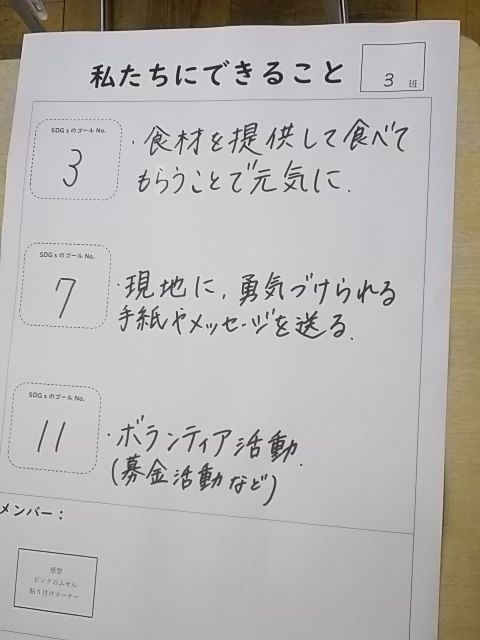 私たちにできること
3 班
SDGsのゴールNo.
3
・食材を提供して食べて
もらうことで元気に.
SDGsのゴールNo.
7
・現地に,勇気づけられる
手紙やメッセージを送る.
SDGsのゴールNo.
11
・ボランティア活動.
(募金活動など)
メンバー：
感想
ピンクのふせん
貼り付けコーナー